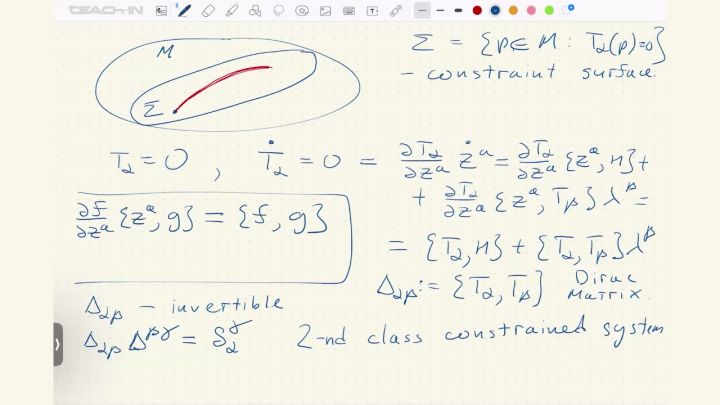 TEACH-IN
M
Σ
Σ = {p∈M : T_α(p)=0}
- constraint surface.
T_α = 0 , Ṫ_α = 0 = ∂T_α/∂z^a ż^a = ∂T_α/∂z^a {z^a, H} +
+ ∂T_α/∂z^a {z^a, T_β} λ^β =
∂f/∂z^a {z^a, g} = {f, g}
= {T_α, H} + {T_α, T_β} λ^β
Δ_αβ := {T_α, T_β} Dirac Matrix.
Δ_αβ – invertible
Δ_αβ Δ^βγ = δ_α^γ 2-nd class constrained system